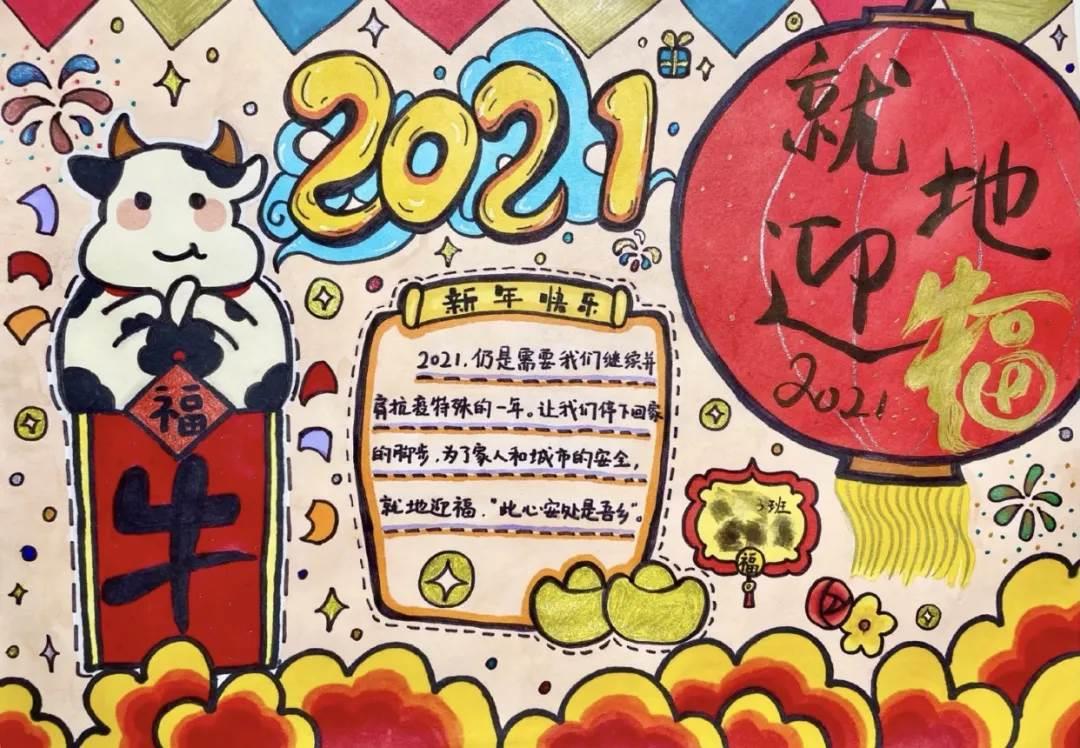 2021
就地
迎福
2021
新年快乐
2021,仍是需要我们继续并
肩抗疫特殊的一年。让我们停下回家
的脚步,为了家人和城市的安全,
就地迎福,“此心安处是吾乡”。
福
牛
3班
福